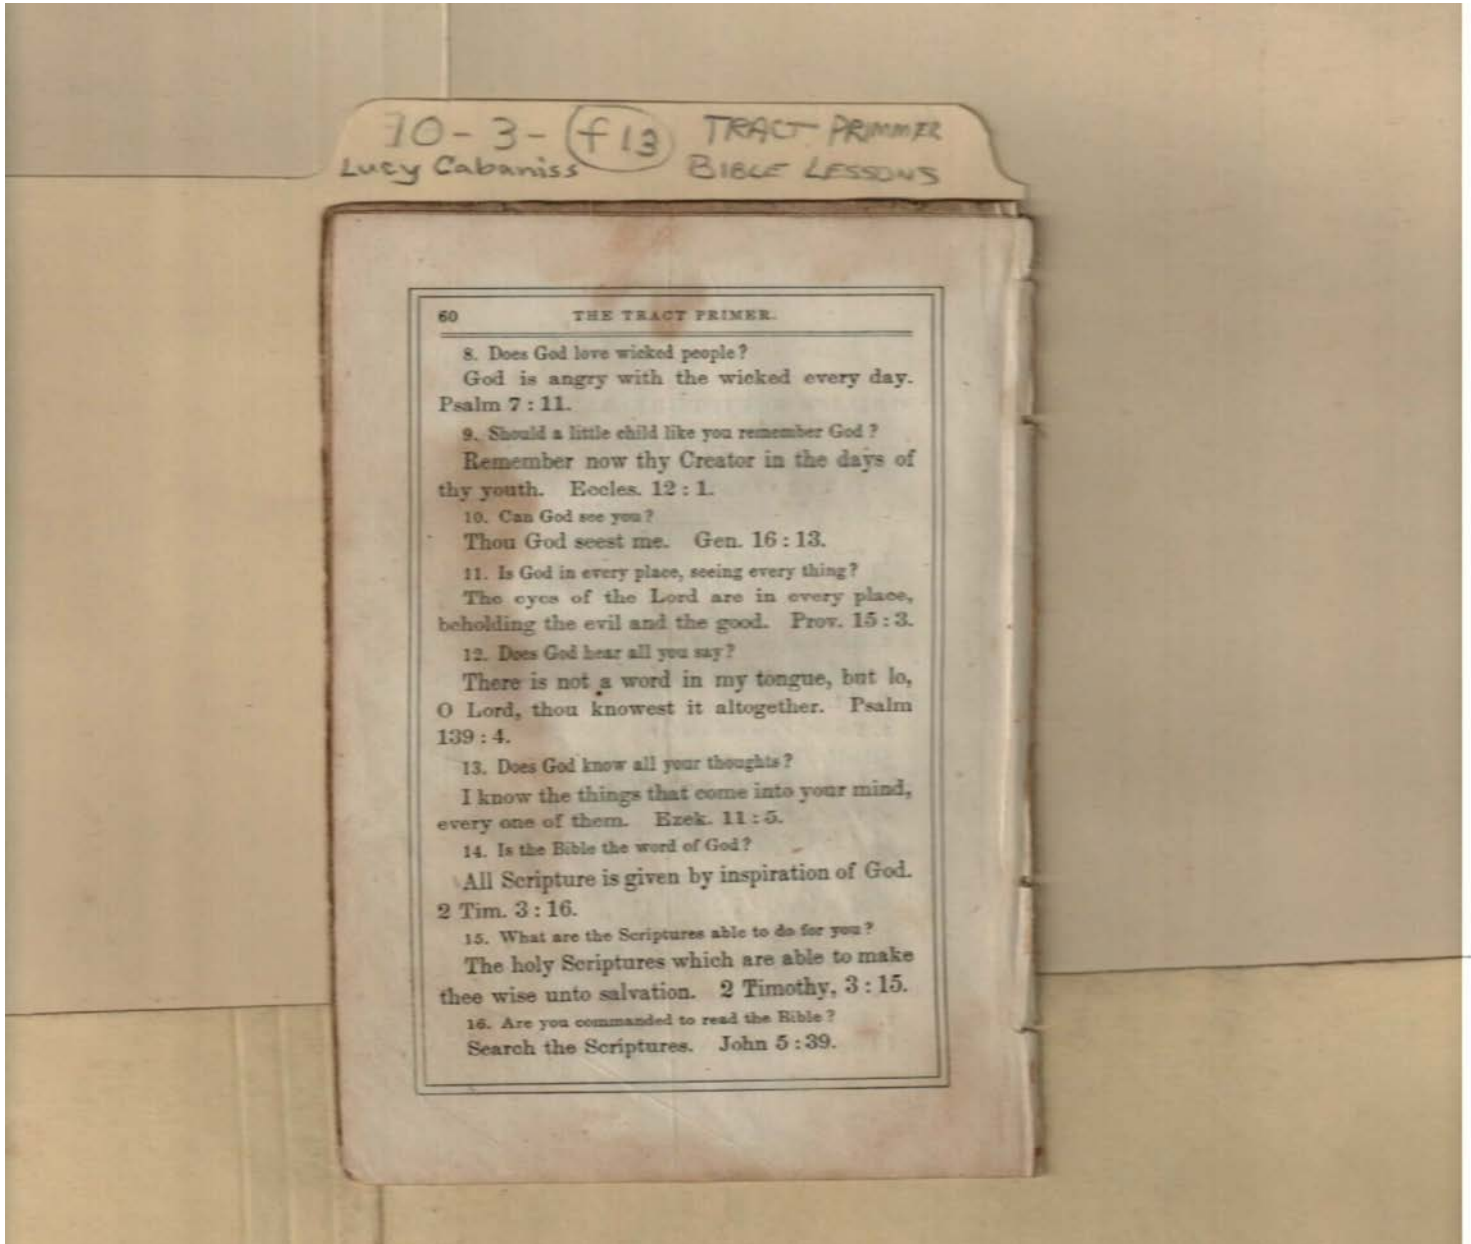 10-3-f13 TRACT PRIMMER
Lucy Cabaniss BIBLE LESSONS
60 THE TRACT PRIMER.
8. Does God love wicked people?
God is angry with the wicked every day.
Psalm 7 : 11.
9. Should a little child like you remember God?
Remember now thy Creator in the days of
thy youth. Eccles. 12 : 1.
10. Can God see you?
Thou God seest me. Gen. 16 : 13.
11. Is God in every place, seeing every thing?
The eyes of the Lord are in every place,
beholding the evil and the good. Prov. 15 : 3.
12. Does God hear all you say?
There is not a word in my tongue, but lo,
O Lord, thou knowest it altogether. Psalm
139 : 4.
13. Does God know all your thoughts?
I know the things that come into your mind,
every one of them. Ezek. 11 : 5.
14. Is the Bible the word of God?
All Scripture is given by inspiration of God.
2 Tim. 3 : 16.
15. What are the Scriptures able to do for you?
The holy Scriptures which are able to make
thee wise unto salvation. 2 Timothy, 3 : 15.
16. Are you commanded to read the Bible?
Search the Scriptures. John 5 : 39.